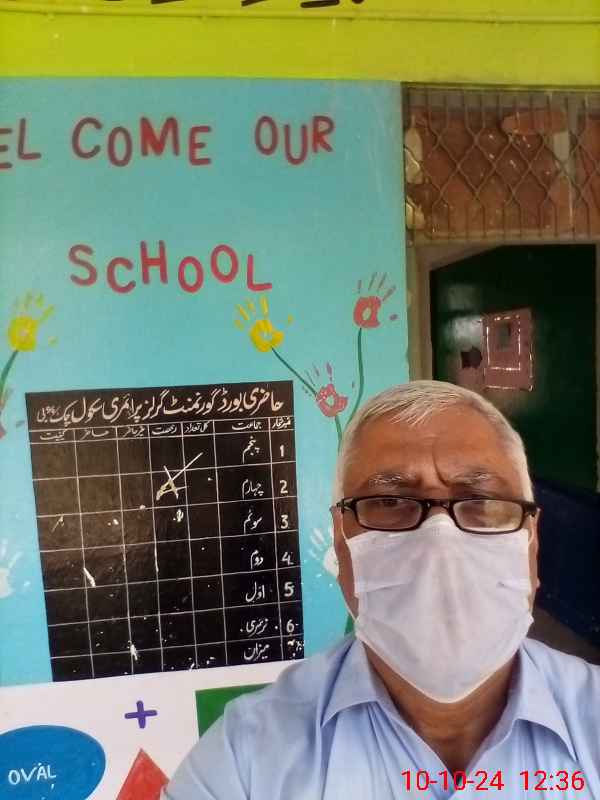 EL COME OUR
SCHOOL
حاضری بورڈ گورنمنٹ گرلز پرائمری سکول چک
نمبر شمار جماعت کل تعداد رخصت غیر حاضر حاضر کیفیت
1 پنجم
2 چہارم
3 سوئم
4 دوم
5 اوّل
6 نرسری
میزان
+
OVAL
10-10-24 12:36